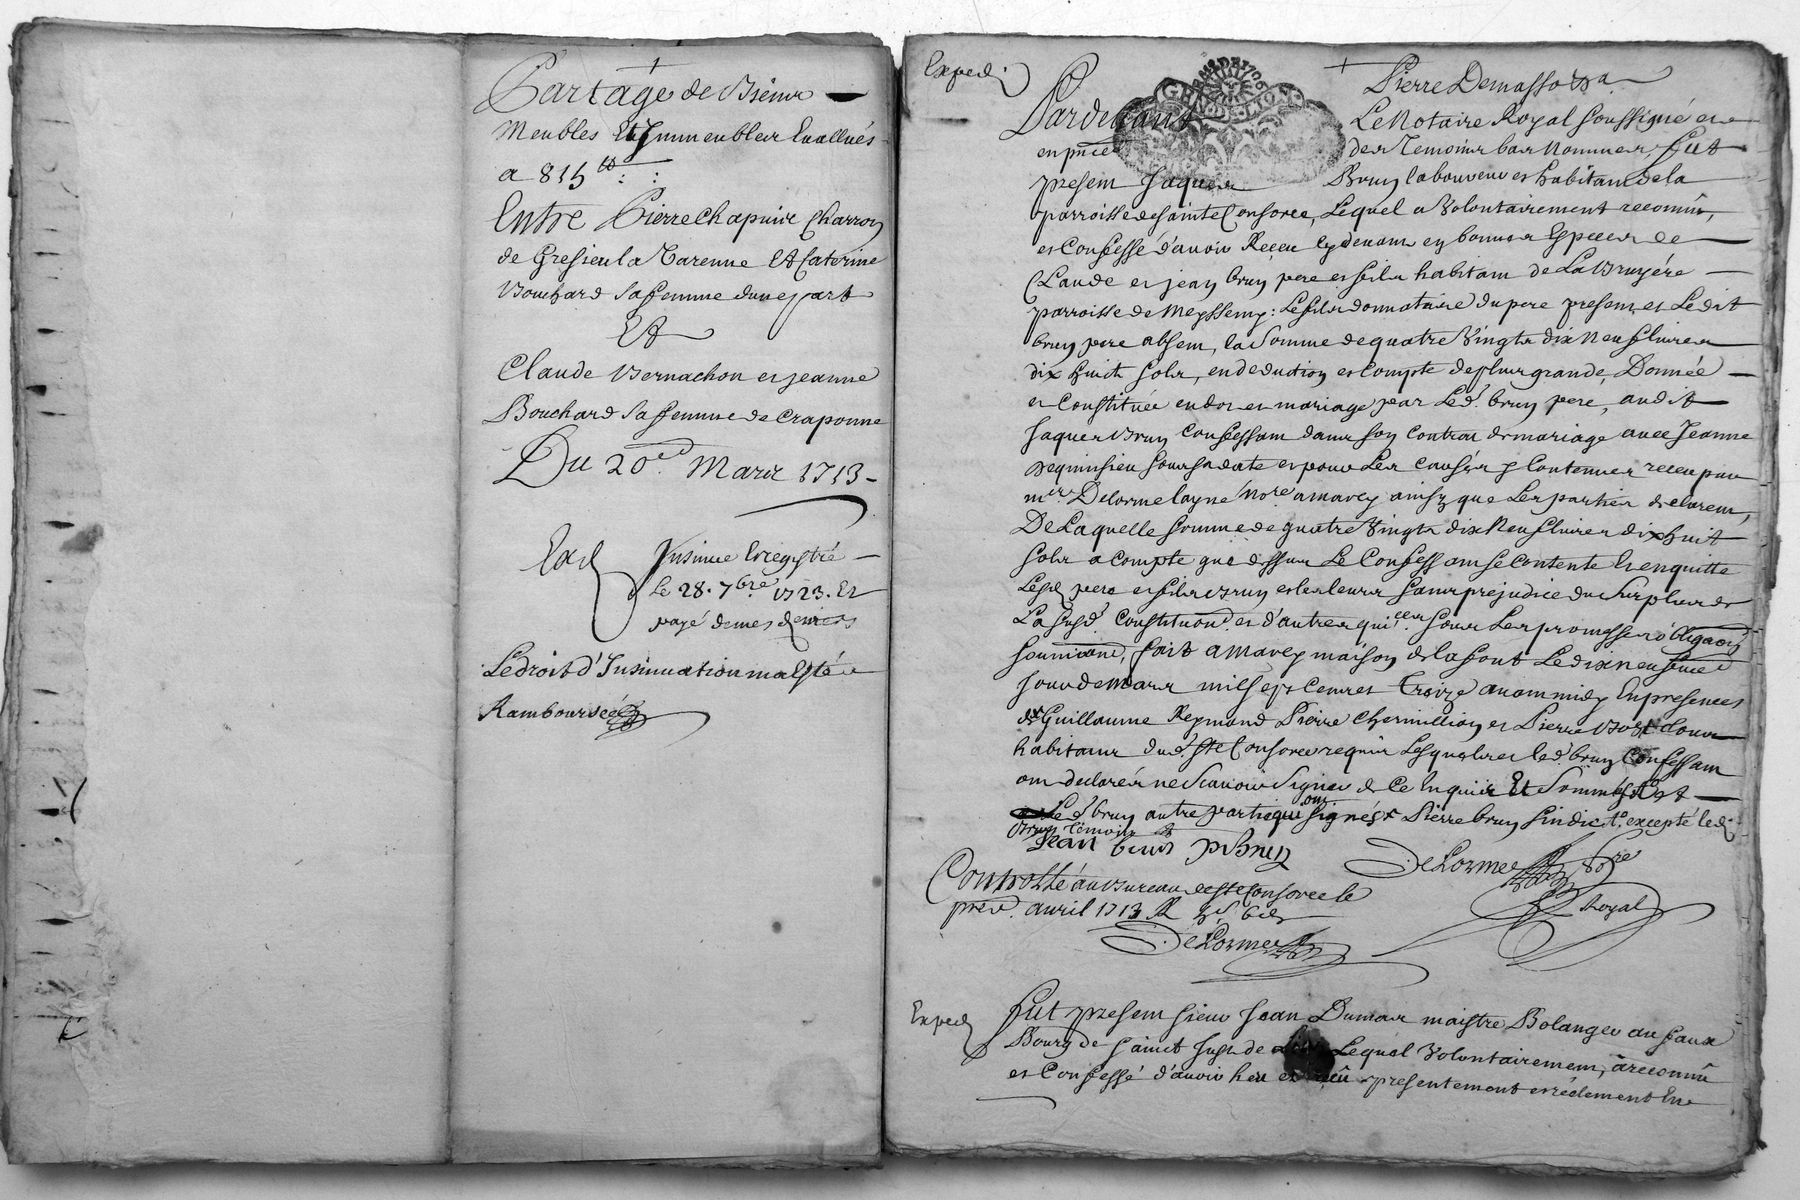 Partage de Biens
Meubles Et Immeubles Evallués
a 815 tt
Entre Pierre Chapuire Charron
de Gresieu la Varenne Et Caterine
Bouchard sa femme dune part
Et
Claude Bernachon et jeanne
Bouchard sa femme de Craponne
Du 20e Mars 1713
Exd
Insinué Enregistré
Le 28. 7bre 1723. Et
payé de mes deniers
Le droit d'Insinuation
Rambourcé
Exped
Pierre
Pardevant Le Notaire Royal soussigné et
en pnce des Temoins bas Nommes, fut
present Jaques Brun laboureur et habitant de la
parroisse de sainte Consorce, Lequel a Volontairement reconnu,
et Confessé d'avoir Receu cy devant en bonnes Especes de
Claude et jean brun pere et fils habitant de La Bruyére
parroisse de Meyssemy: Le fils donnataire du pere present et Le dit
brun pere absent, la somme de quatre Vingts dix Neuf livres
dix huict sols, en deduction et Compte de plus grande, Donnée
et Constituée en dot et mariage par Led. brun pere, audit
Jaques Brun Confessant dans son Contrat de mariage avec Jeanne
sous sa date et pour Les causes y Contenues receu par
mre Delorme layné nore a marcy ainsy que Les parties declarent,
De Laquelle somme de quatre Vingts dix Neuf livres dix huit
sols a compte que dessus Le Confessant se contente Et en quitte
Lesd pere et fils brun et les leurs sans prejudice du Surplus de
La susd Constituon et d'autres
fait a Marcy maison de la font Le dix neufvieme
Jour de Mars mil sept Cents et Treize avant midy En presences
de Guillaume Reymond Pierre Chermillion et Pierre
habitants dud. ste Consorce requis Lesquels et led. brun Confessant
ont declarés ne Scavoir Signer de Ce Enquis Et Sommés
Le d brun autre partie qui ont signés Pierre brun sindic excepté led
Brun témoin
Jean brun P Brun
DeLorme nore
Royal
Controllé au Bureau de ste Consorce le
pred. avril 1713
DeLorme
Exped
fut present sieur Jean Dumas maistre Bolanger au faux
Bourg de sainct Just de Lequel Volontairement, a reconnu
et Confessé d'avoir heu et receu presentement et réelement En